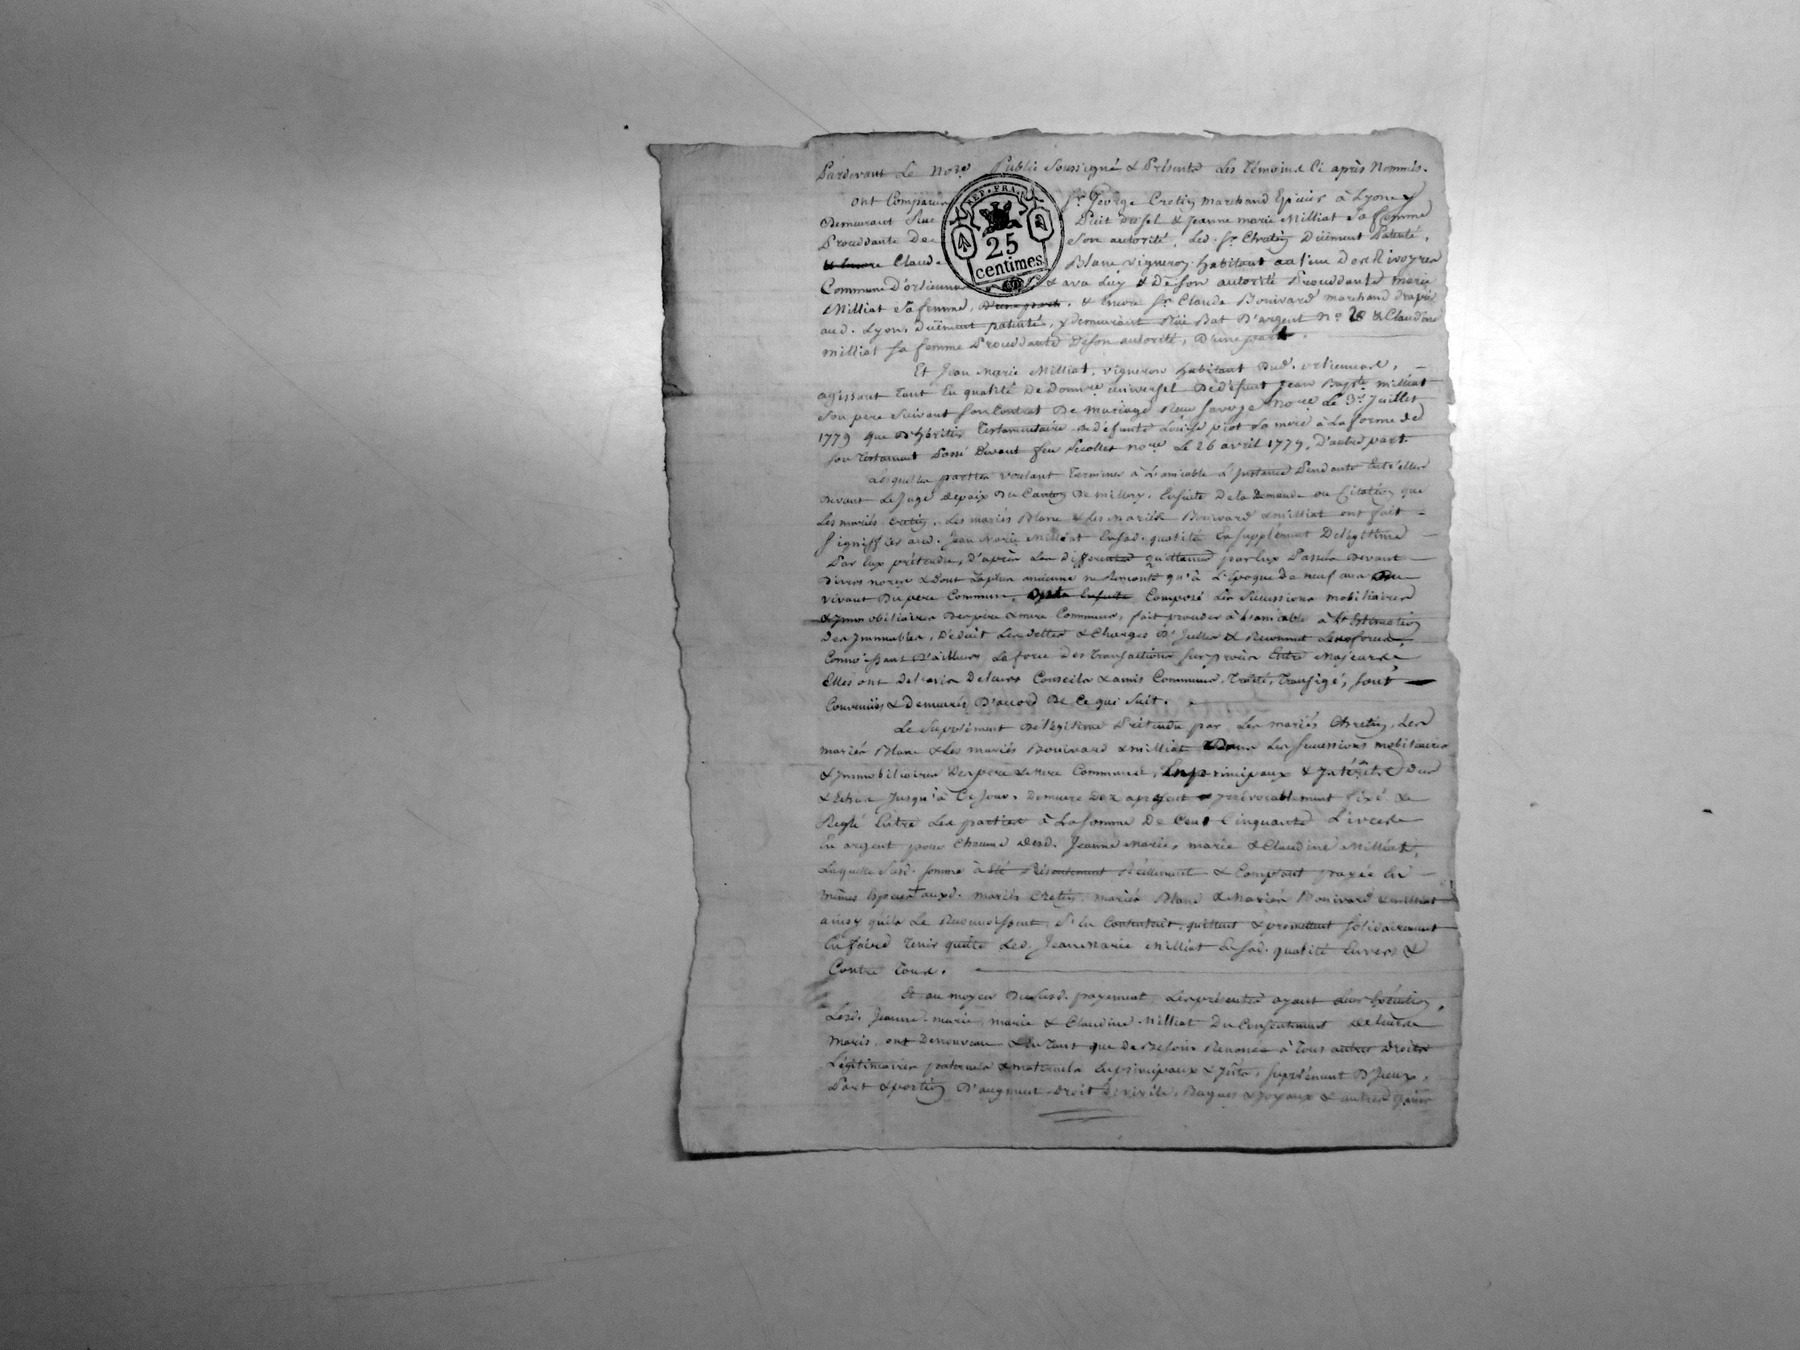 Pardevant Le No.re Public Soussigné & Présents Les Témoins Ci après Nommés.
REP. FRA.
25
centimes
ont Comparu Sr. George Cretin Marchand Epicier à Lyon y
Demeurant Rue Puit &  Jeanne marie Milliat Sa femme
Procédante De Son autorité, Led. Sr. Chretin Düement Patenté,
Claude Blanc Vigneron habitant au Lieu Des Rivoyres
Commune D'orlienas & avec Luy & De Son autorité Procédante Marie
Milliat Sa femme, & Encore Sr. Claude Bouivard marchand drapier
aud. Lyon, Düement patenté, y demeurant Rüe Bat D'argent No. & Claudine
Milliat Sa femme Procédante De Son autorité, D'une part.
Et Jean Marie Milliat, vigneron habitant Dud. orlienas,
agissant Tant En qualité De Don.re universel De Défunt Jean Bap.te Milliat
Son pere Suivant Son Contrat De Mariage No.re Le 3e. Juillet
1779 que D'héritier Testamentaire de défunte Louise piot Sa mere à La forme de
Son Testament Passé Devant feu No.re Le 26 avril 1779, D'autre part.
Lesquelles parties voulant Terminer à L'amiable L'Instance Pendante Entr'elles
Devant Le Juge De paix Du Canton De Millery, Ensuite De la Demande ou Citation que
Les mariés Cretin, Les mariés Blanc & Les Mariés Bouivard & Milliat ont fait
Signiffier aud. Jean Marie Milliat En Sad. qualité En Supplément De Légitime
Par Eux prétendu, D'après Les differentes quittances par Eux Passées Devant
Divers no.res & Dont La plus ancienne ne Remonte qu'à L'époque De neuf ans Du
vivant Du pere Commun, Composé Les Successions mobiliaires
& Immobiliaires Des pere & mere Communs, fait procéder à L'amiable à L'Estimation
Des Immeubles, Déduit Les dettes & Charges D'Icelles & Reconnu Les forces,
Connoissant D'ailleurs La force Des Transactions Sur procès Entre Majeurs
Elles ont De L'avis De Leurs Conseils & amis Communs, Traité, Transigé, Sont
Convenües & Demeurées D'accord De Ce qui Suit.
Le Supplément De Légitime Prétendu par Les mariés Chretin, Les
mariés Blanc & Les mariés Bouivard & milliat Dans Les Successions mobiliaires
& Immobiliaires Des pere & mere Communs, En principaux & Intérêts Dus
& Echus Jusqu'à Ce Jour, Demeure Des à présent Irrévocablement fixé &
Reglé Entre Les parties à La Somme De Cent Cinquante Livres
En argent pour Chacune Desd. Jeanne Marie, marie & Claudine Milliat,
Laquelle Susd. Somme à Eté Présentement Réellement & Comptant payée En
mêmes Espèces auxd. mariés Cretin, mariés Blanc & Mariés Bouivard & milliat
ainsy qu'ils Le Reconnoissent, S'en Contentent, quittent & promettent Solidairement
En faire Tenir quitte Led. Jean Marie Milliat En Sad. qualité Envers &
Contre Tous.
Et au moyen Du Susd. payement, Les présentes ayant Leur Exécution,
Lesd. Jeanne-marie, marie & Claudine Milliat Du Consentement De Leurs
Maris, ont De nouveau & En Tant que De Besoin Renoncé à Tous autres Droits
Légitimaires paternels & maternels En principaux & Ints, Supplément D'Iceux,
Part & portion D'augment, Droit De virile, Bagues & Joyaux & autres Gains